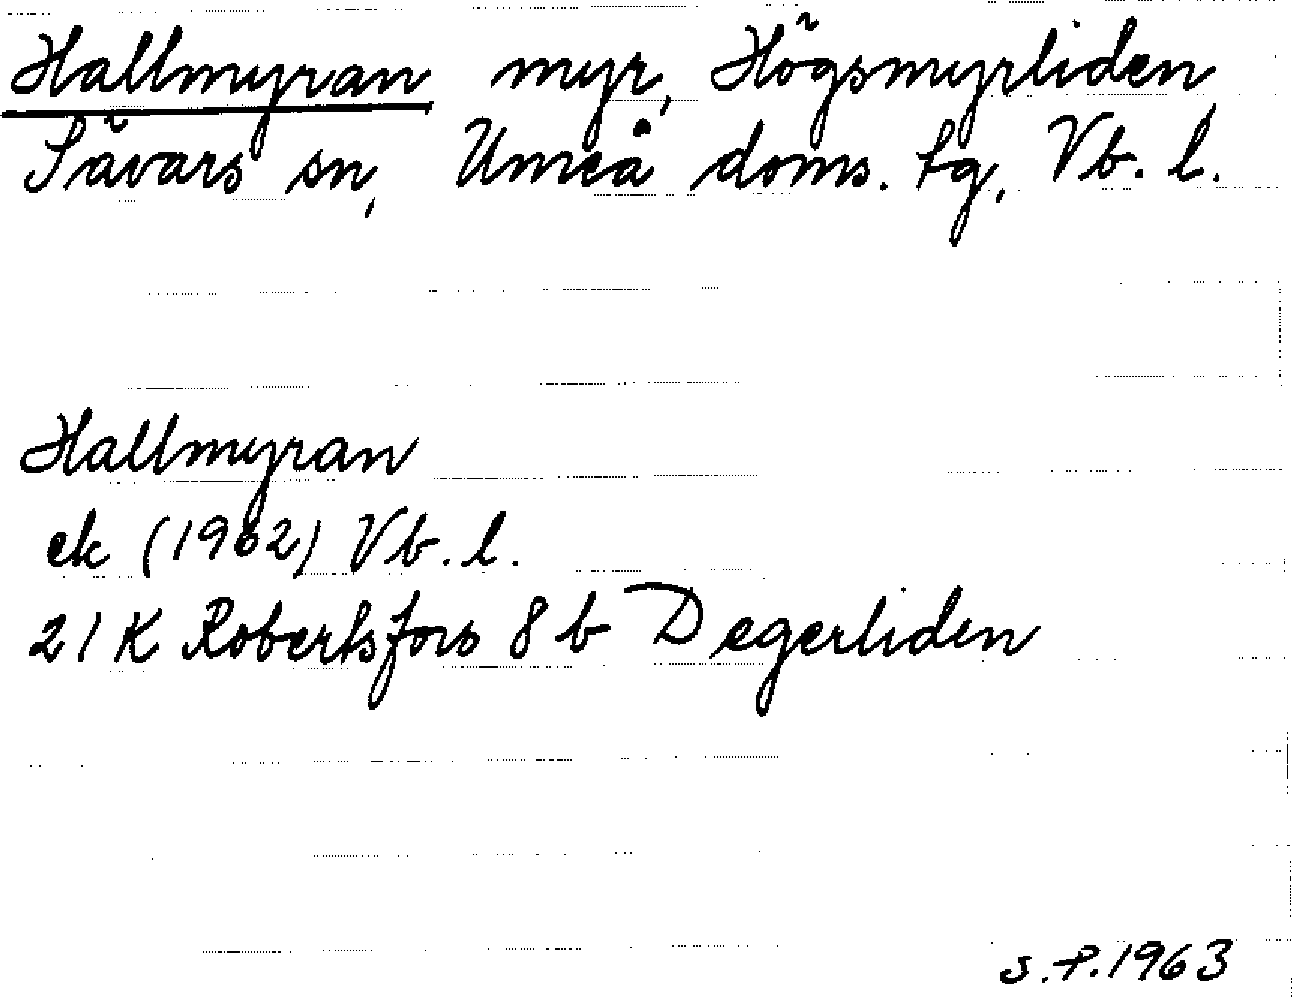 Hallmyran myr, Högsmyrliden
Sävars sn, Umeå doms. tg, Vb. l.
Hallmyran
ek (1962) Vb. l.
21K Robertsfors 8b Degerliden
S.P. 1963